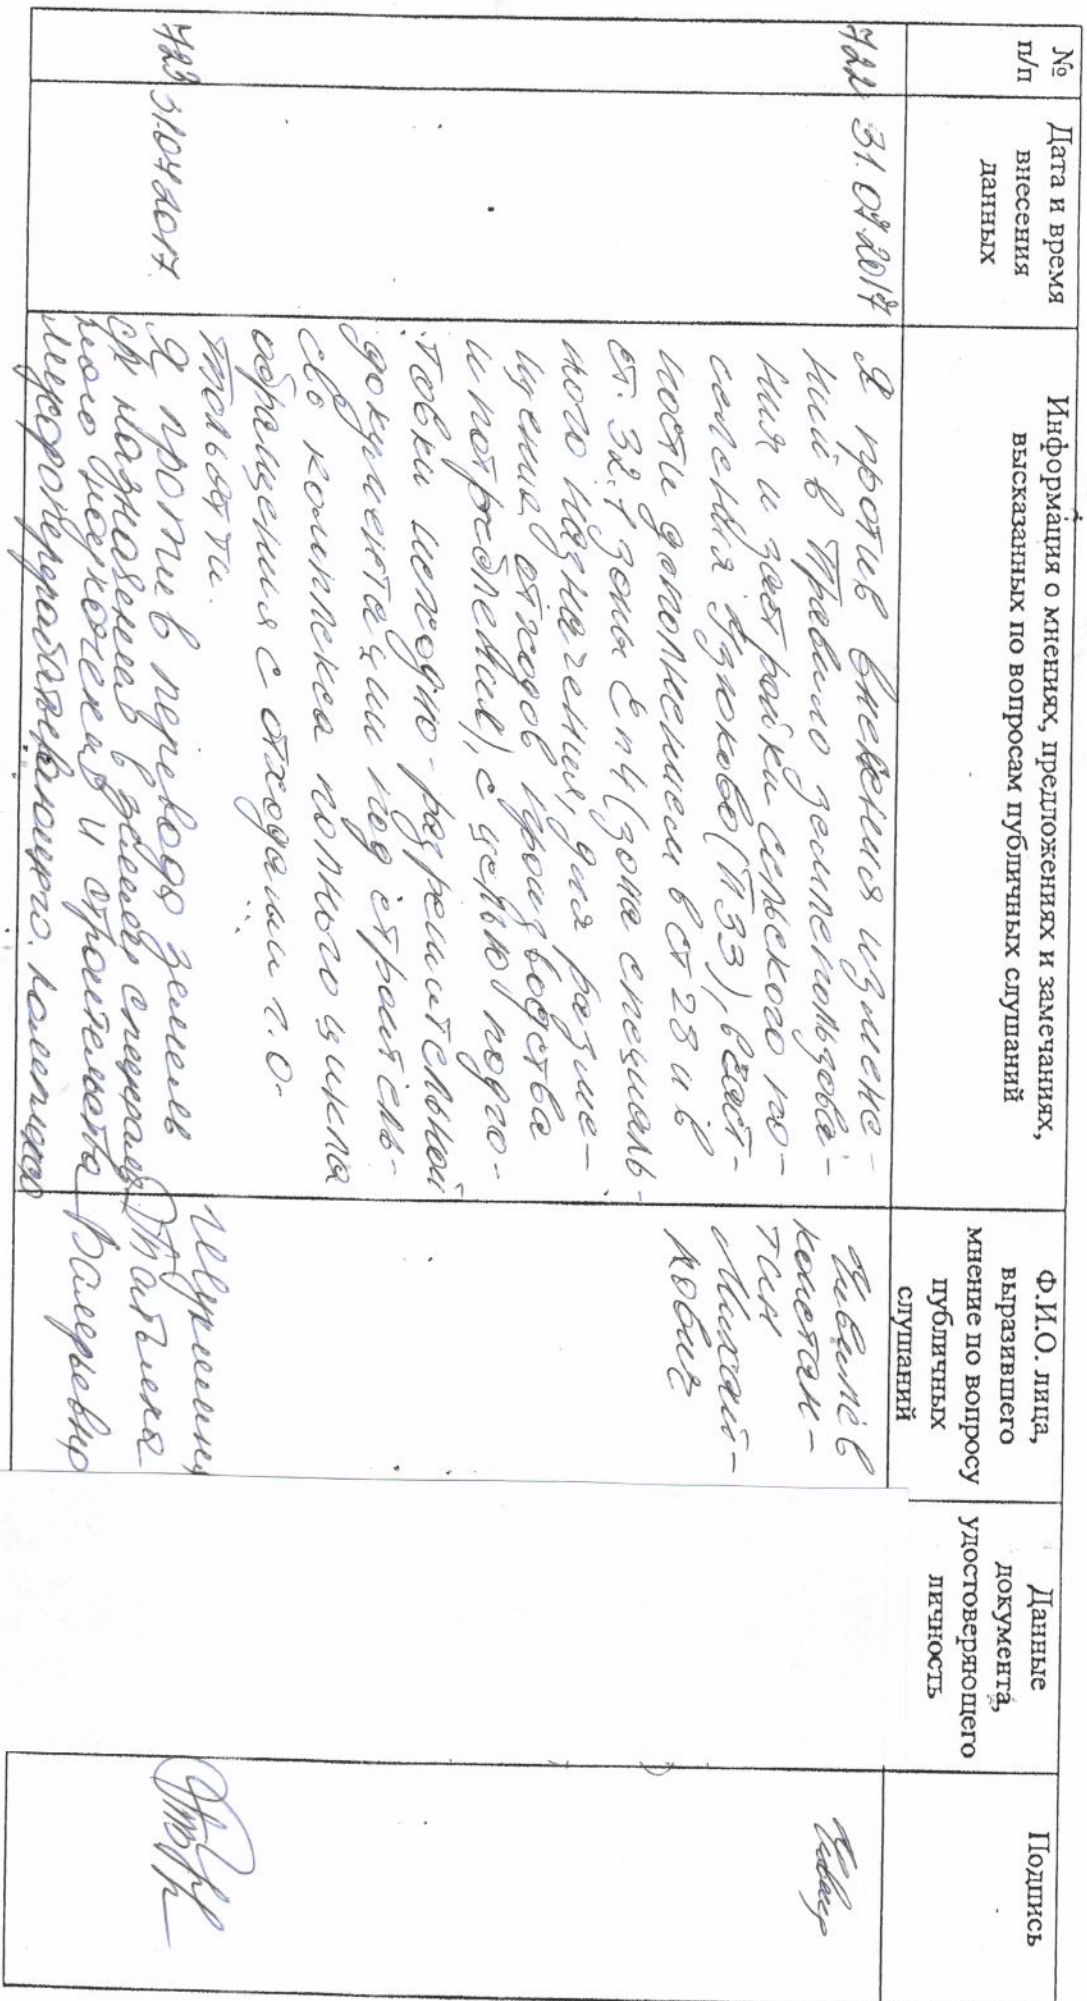 №
п/п
Дата и время
внесения
данных
Информация о мнениях, предложениях и замечаниях,
высказанных по вопросам публичных слушаний
Ф.И.О. лица,
выразившего
мнение по вопросу
публичных
слушаний
Данные
документа,
удостоверяющего
личность
Подпись
722
31.07.2017
Я против внесения измене-
ний в Правило землепользова-
ния и застройки сельского по-
селения Узюково (ПЗЗ), в част-
ности дополнением в ст 28 и в
ст. 32.1 зоны Сп4 (зона специаль-
ного назначения, для разме-
щения отходов производства
и потребления), с целью подго-
товки исходно-разрешительной
документации под строитель-
сво комплекса полного цикла
обращения с отходами г.о.
Тольятти.
констан-
тин
Михай-
лович
723
31.07.2017.
Я против перевода земель
с/х назначения в земли специаль
ного назначения и строительства
мусороперерабатывающего комплекса
Татьяна
Валерьевна